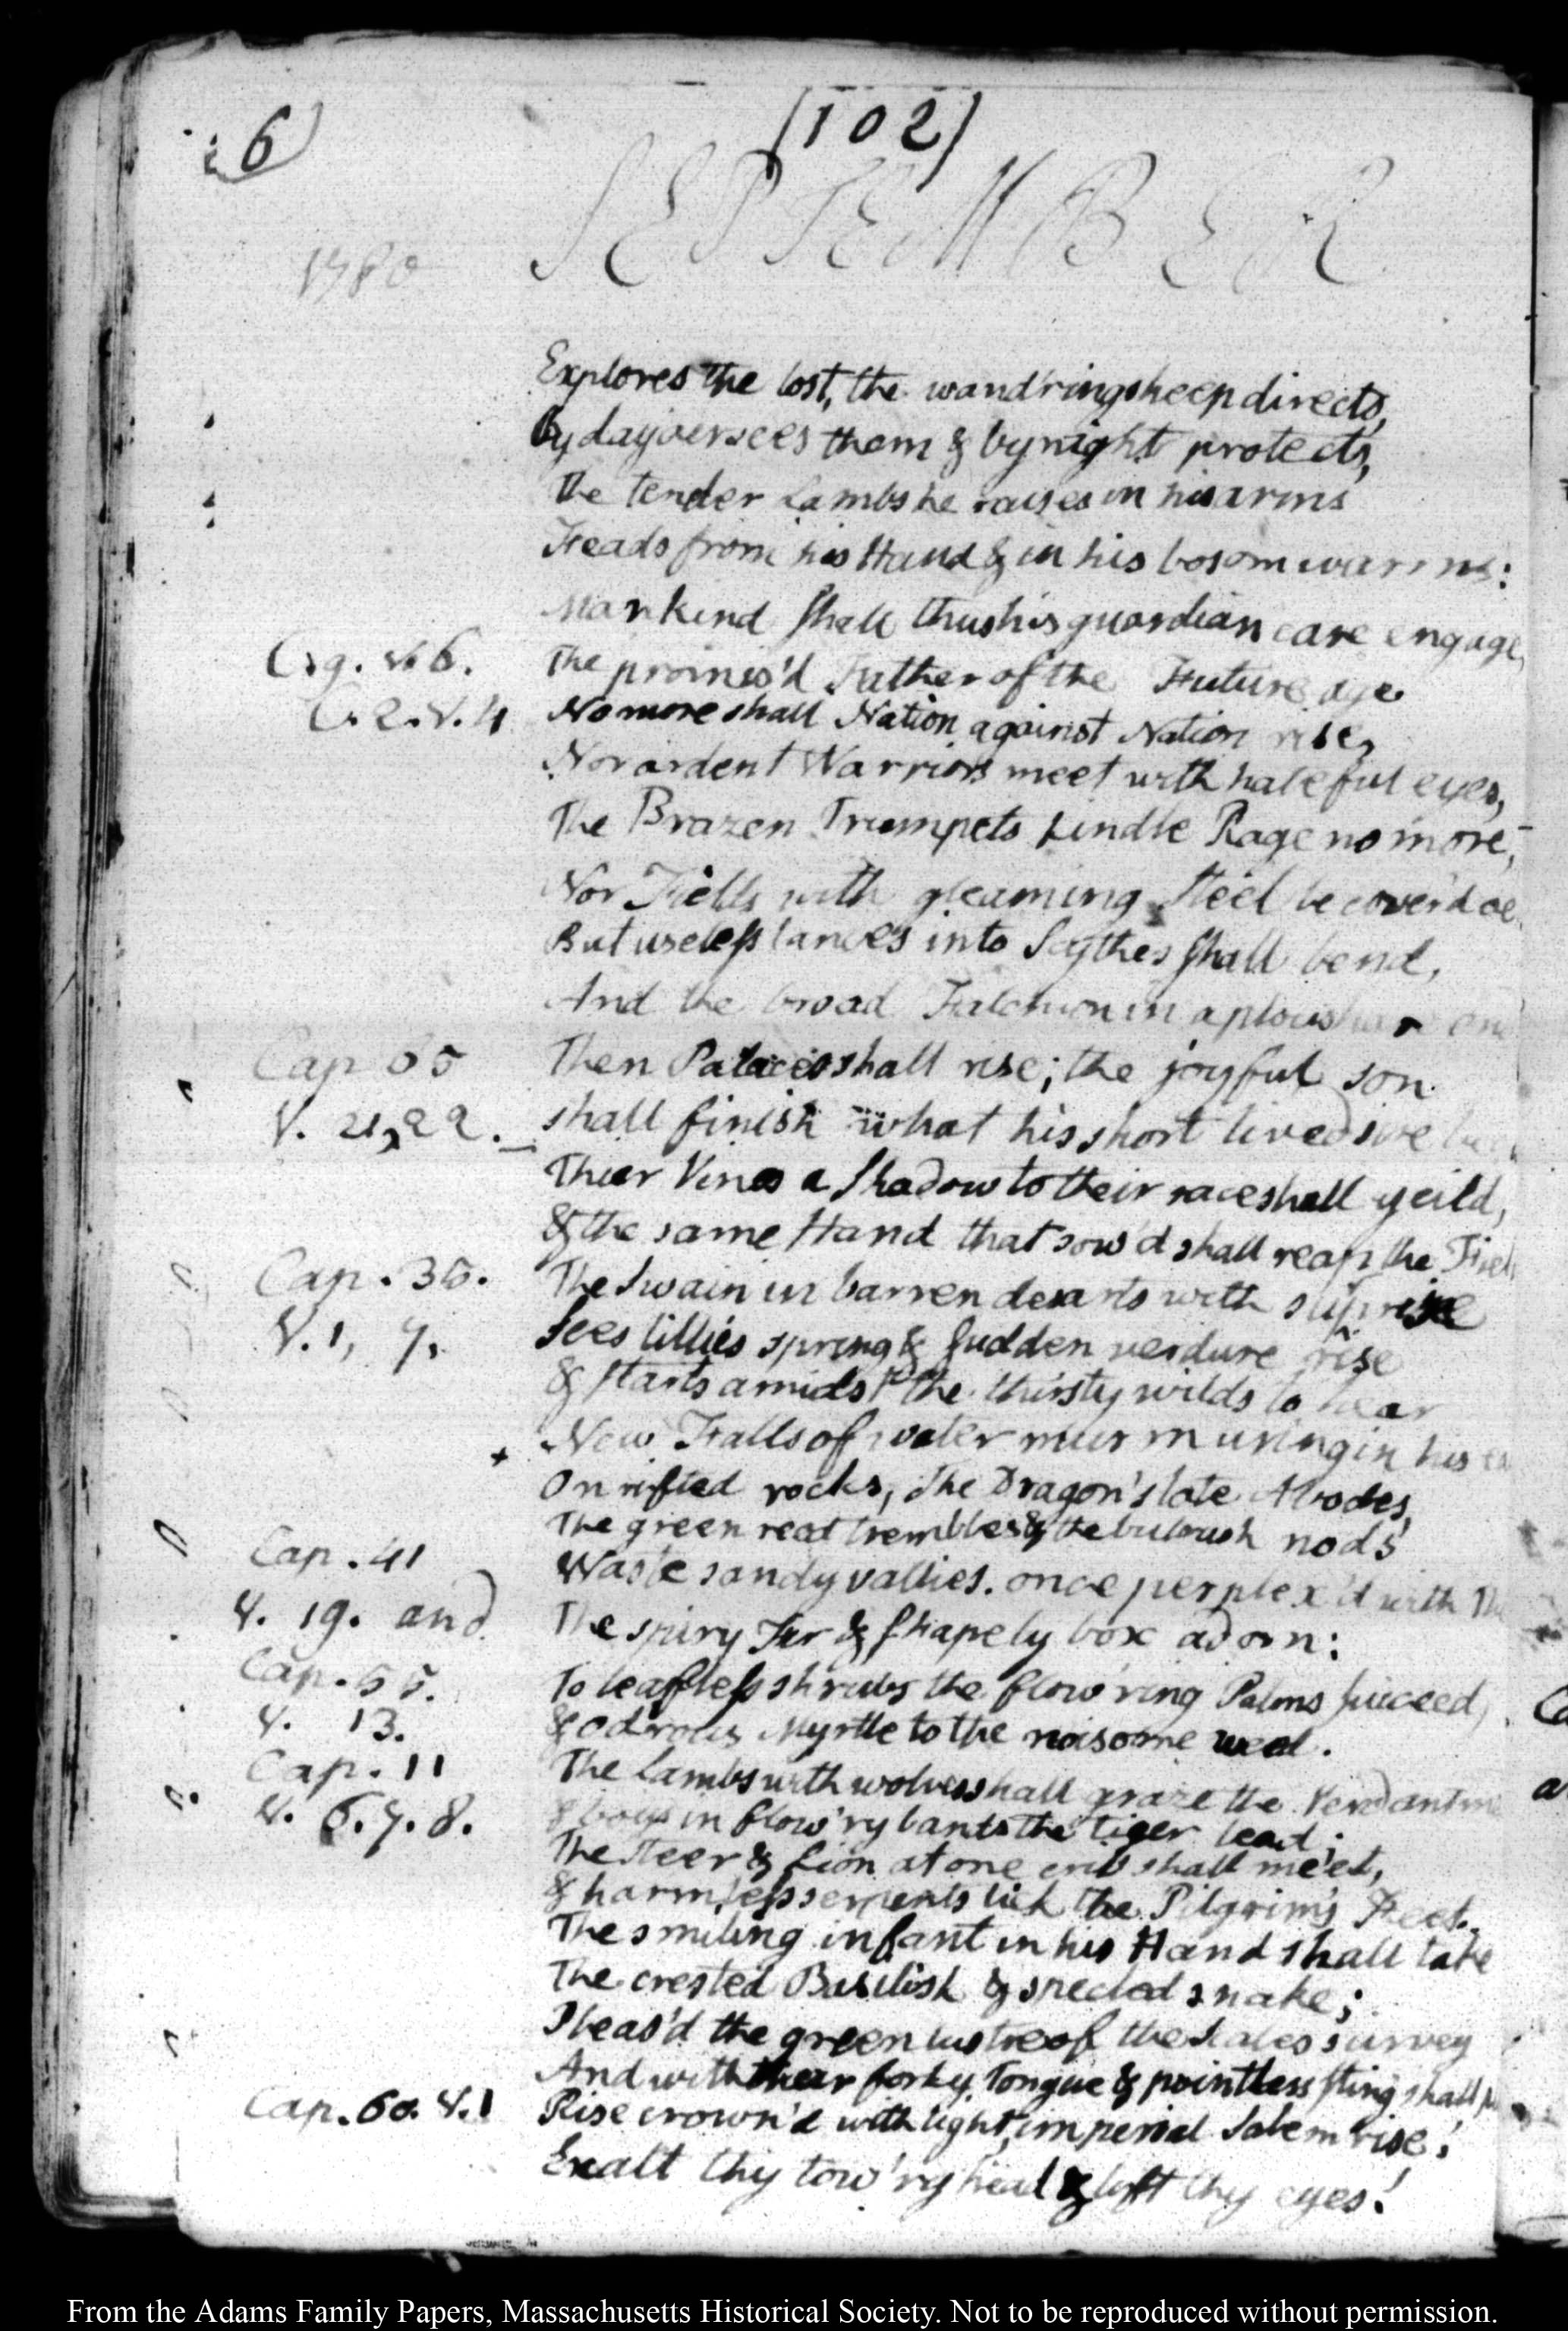 6
(102)
SEPTEMBER
1780
Explores the lost, the wand'ring sheep directs,
by day oversees them & by night protects,
The tender Lambs he raises in his arms
Feads from his Hand & in his bosom warms:
Mankind shall thus his guardian care engage,
C. 9. V. 6. The promis'd Father of the Future age
C. 2. V. 4 No more shall Nation against Nation rise,
Nor ardent Warriors meet with hateful eyes,
The Brazen Trumpets kindle Rage no more,
Nor Fields with gleaming Steel be cover'd oe
But useless lances into Scythes shall bend,
And the broad Falchion in a plowshar en
Cap 65 Then Palaces shall rise; the joyful son
V. 21, 22. shall finish what his short lived sire
Thier Vines a Shadow to their race shall yeild,
& the same Hand that sow'd shall reap the Fiel
Cap. 35. The Swain in barren desarts with suprise
V. 1, 7. Sees lillies spring & sudden verdure rise
& starts amidst the thirsty wilds to hear
+ New Falls of water murmuring in his ea
On rifted rocks, the Dragon's late Abodes,
The green reed trembles & the bulrush nods
Cap. 41 Waste sandy vallies. once perplex'd with Th
V. 19. and The spiry Fir & shapely box adorn:
Cap. 55. To leafless shrubs the flow'ring Palms succeed,
V. 13. & odrous Myrtle to the noisome weed.
Cap. 11 The Lambs with wolves shall graze the Verdant me
V. 6. 7. 8. & boys in flow'ry bands the tiger lead;
The Steer & Lion at one crib shall meet,
& harmless serpents lick the Pilgrim's Feet.
The smiling infant in his Hand shall take
The crested Basilisk & specled snake;
Pleas'd the green lustre of the Scales survey
And with thier forky Tongue & pointless sting shall
Cap. 60. V. 1 Rise crown'd with light, imperial Salem rise!
Exalt thy tow'ry head & lift thy eyes!
From the Adams Family Papers, Massachusetts Historical Society. Not to be reproduced without permission.